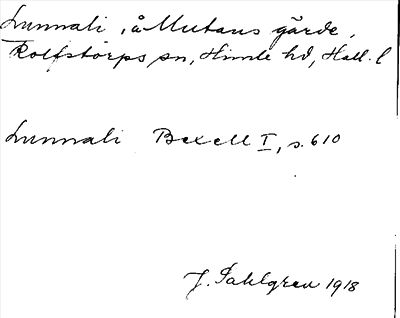 Lunnali, å Mutans gärde,
Rolfstorps sn, Himle hd, Hall. l
Lunnali Bexell I, s. 610
J. Sahlgren 1918